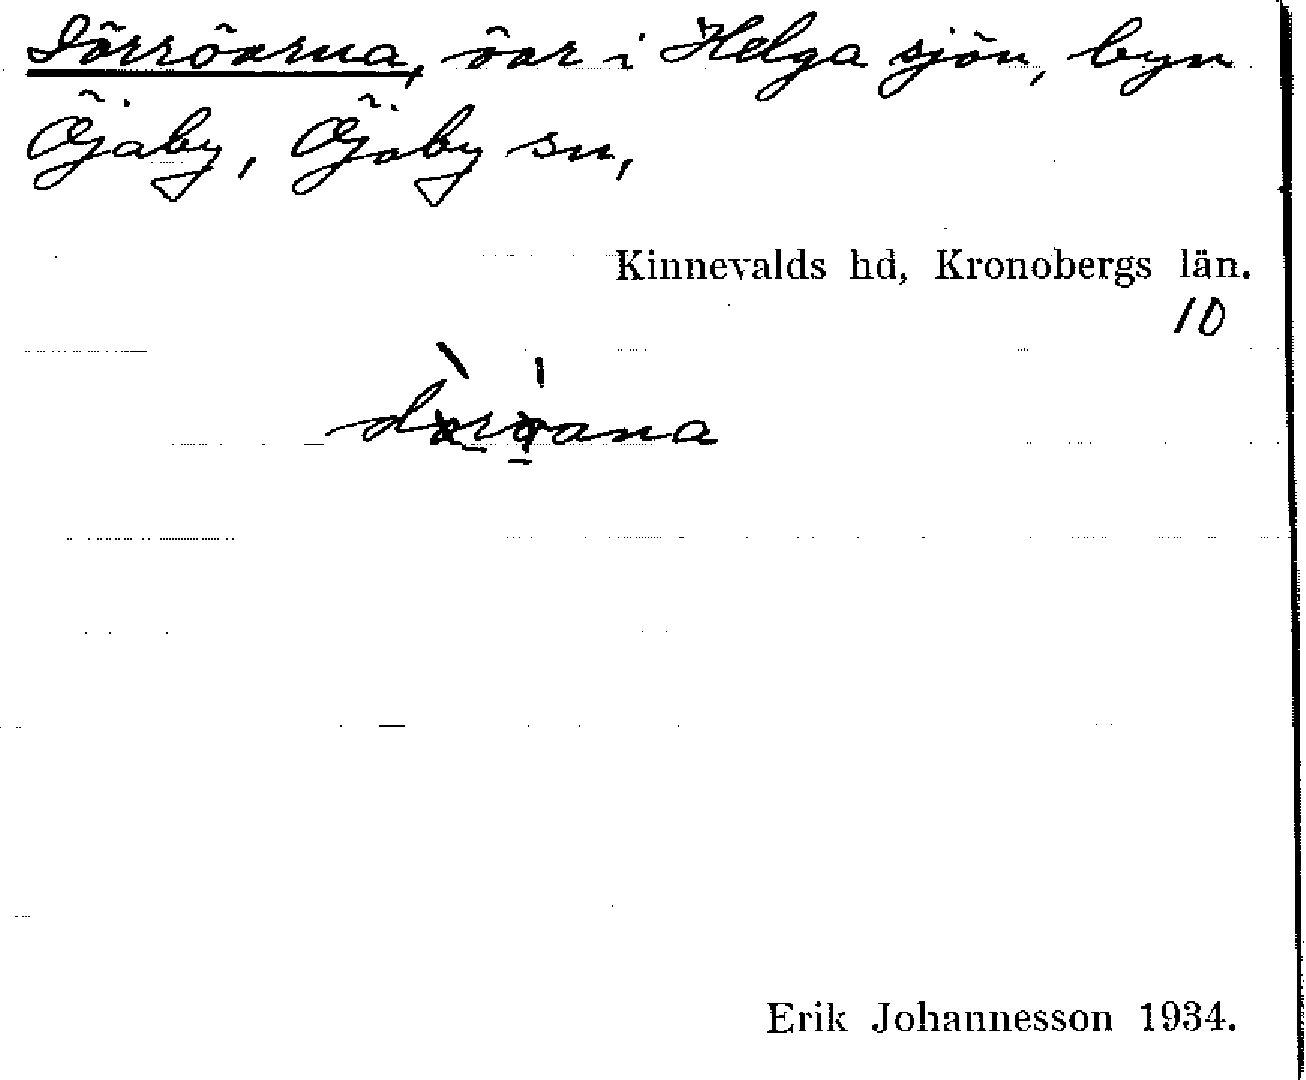 Dörröarna, öar i Helga sjön, byn
Öjaby, Öjaby sn,
Kinnevalds hd, Kronobergs län.
10
Erik Johannesson 1934.